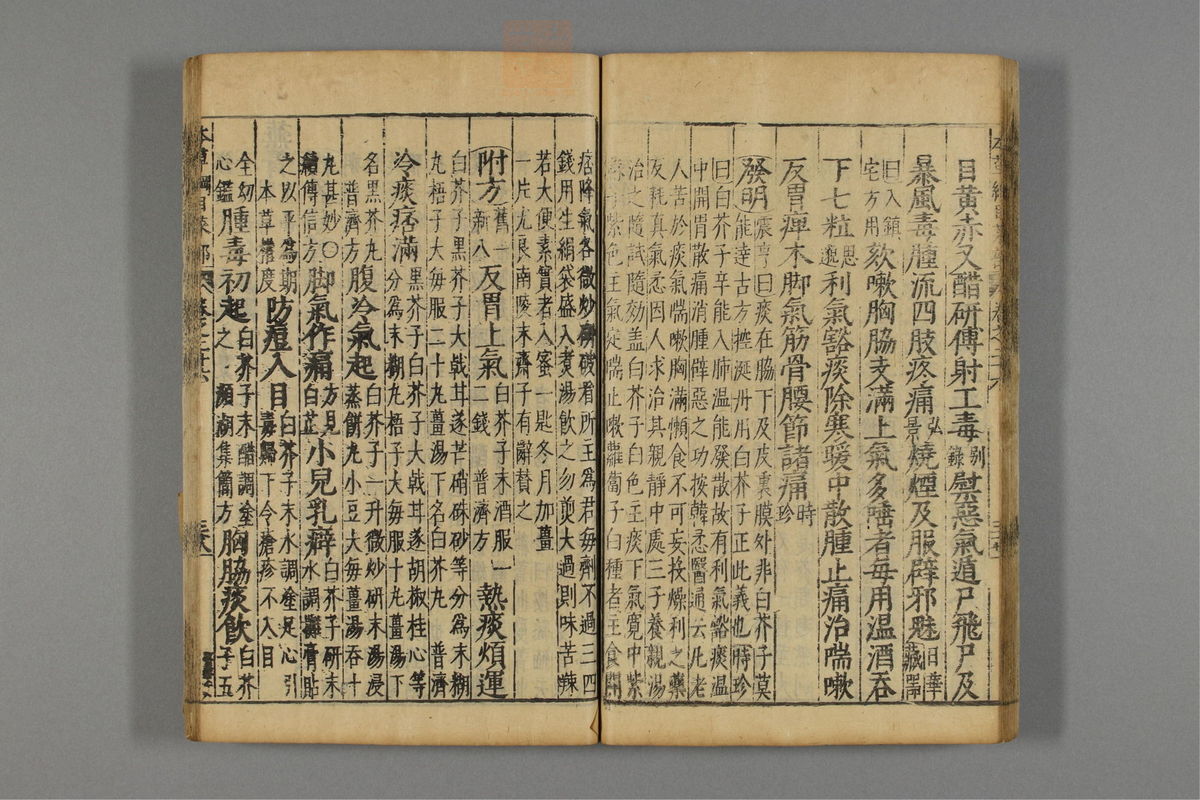 目黃赤又醋研傅射工毒別錄熨惡氣遁尸飛尸及
暴風毒腫流四肢疼痛弘景燒煙及服辟邪魅日華藏器
曰入鎮宅方用欬嗽胸脇支滿上氣多唾者每用温酒吞
下七粒思邈利氣豁痰除寒暖中散腫止痛治喘嗽
反胃痺木脚氣筋骨腰節諸痛時珍
發明
震亨曰痰在脇下及皮裏膜外非白芥子莫
能達古方控涎丹用白芥子正此義也時珍
曰白芥子辛能入肺温能發散故有利氣豁痰温
中開胃散痛消腫辟惡之功按韓𢙢醫通云凡老
人苦於痰氣喘嗽胸滿懶食不可妄投燥利之藥
反耗真氣𢙢因人求治其親靜中處三子養親湯
治之隨試隨効盖白芥子白色主痰下氣寬中紫
蘇子紫色主氣定喘止嗽蘿蔔子白種者主食開
痞降氣各微炒研破看所主爲君每劑不過三四
錢用生絹袋盛入煮湯飲之勿煎大過則味苦辣
若大便素實者入蜜一匙冬月加薑
一片尤良南陵末齋子有辭贊之
附方舊一新八反胃上氣白芥子末酒服一二錢 普濟方熱痰煩運
白芥子黑芥子大戟甘遂芒硝硃砂等分爲末糊
丸梧子大每服二十丸薑湯下名白芥丸 普濟
冷痰痞滿黑芥子白芥子大戟甘遂胡椒桂心等
分爲末糊丸梧子大每服十丸薑湯下
名黑芥丸普濟方腹冷氣起白芥子一升微炒研末湯浸
蒸餅丸小豆大每薑湯吞十
丸甚妙〇續傳信方脚氣作痛方見白芷小兒乳癖白芥子研末
水調攤膏貼
之以平爲期本草權度防痘入目白芥子末水調塗足心引
毒歸下令瘡疹不入目
全幼心鑑腫毒初起白芥子末醋調塗之 瀕湖集簡方胸脇痰飲白芥子五
本草綱目菜部
卷之二十六